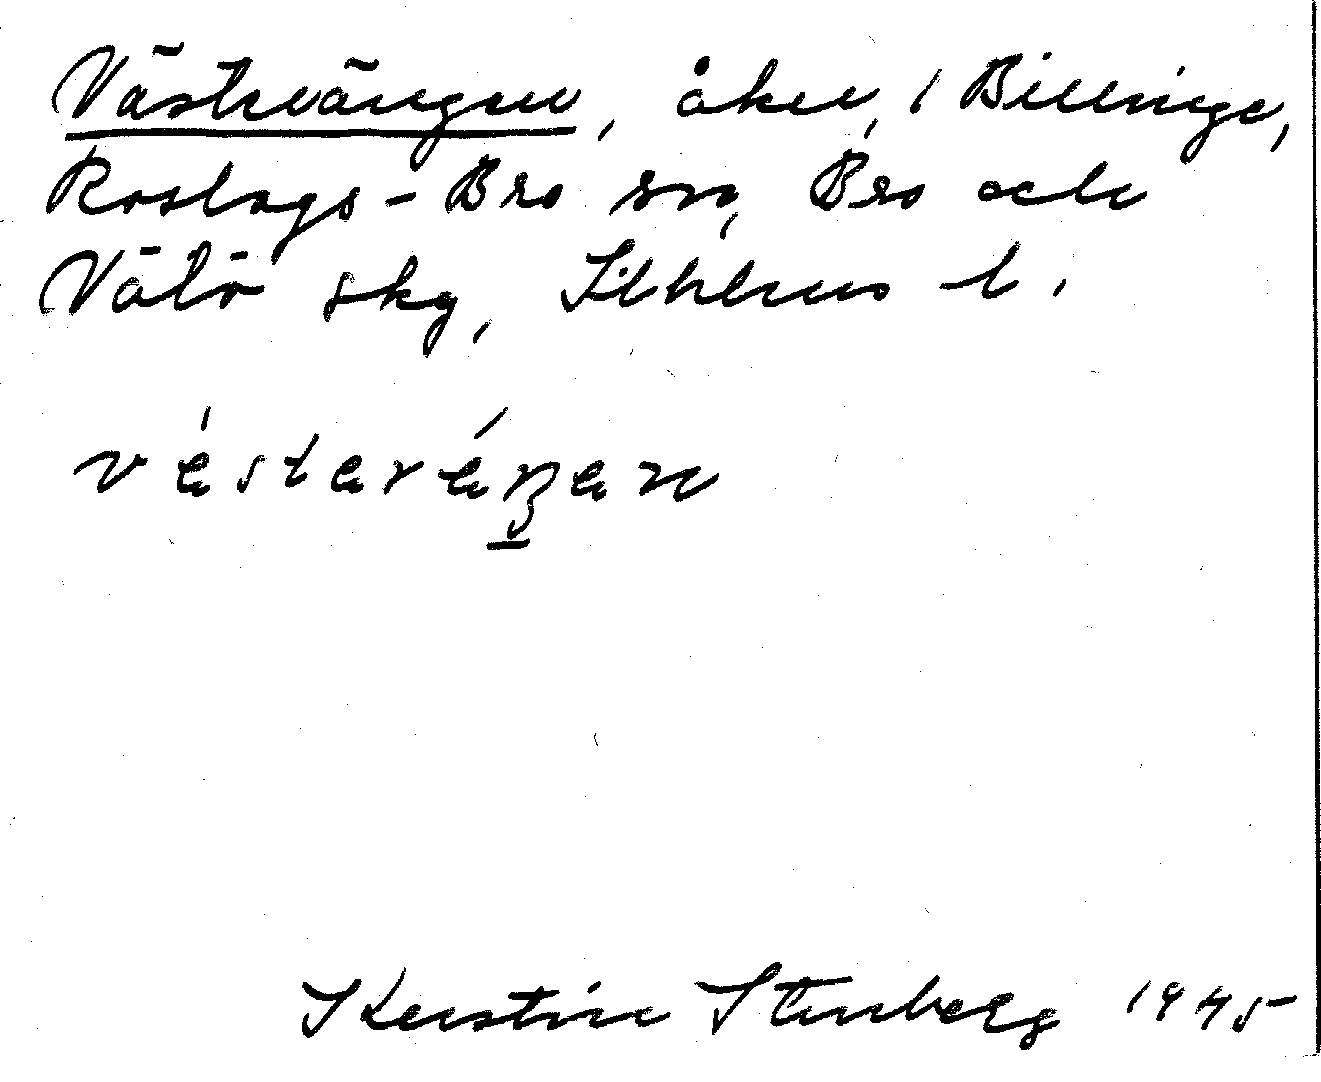 Västerängen, åker, i Billinge,
Roslags-Bro sn, Bro och
Vätö skg, Sthlms l.
västäräŋän
Kerstin Stenberg 1945